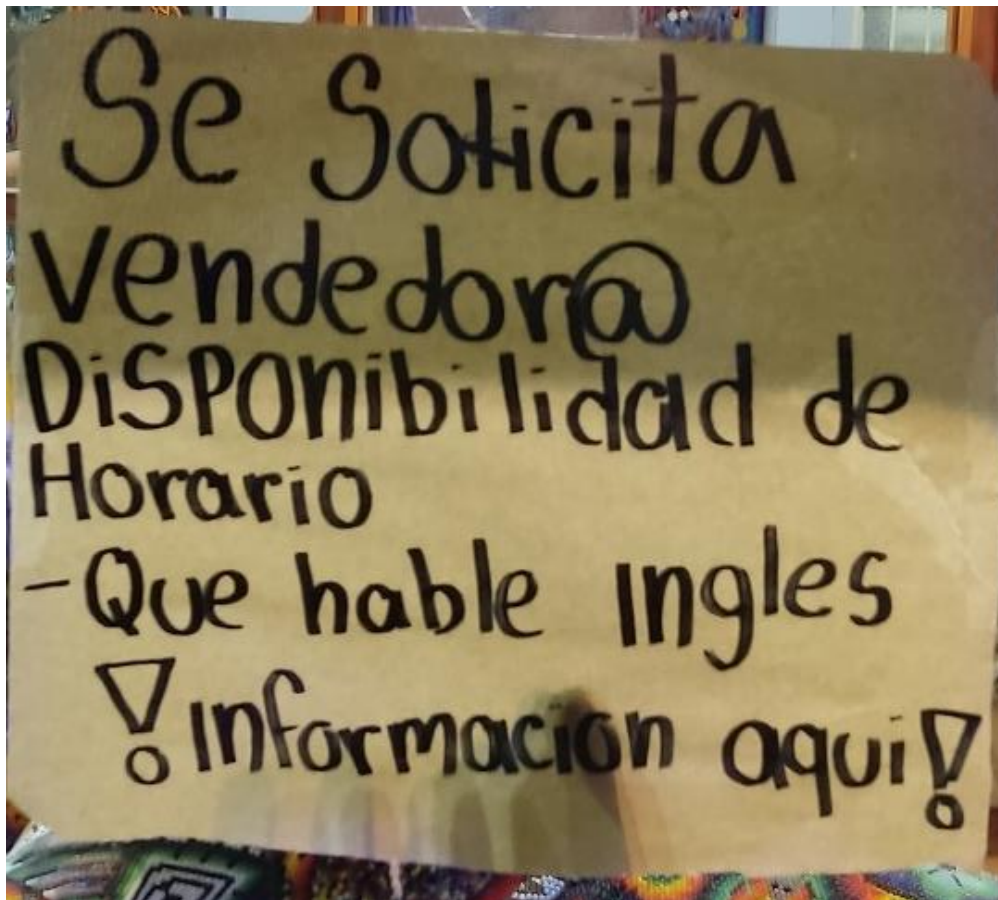 Se Solicita
vendedor@
DiSPOnibilidad de
Horario
- Que hable Ingles
! Informacion aqui!